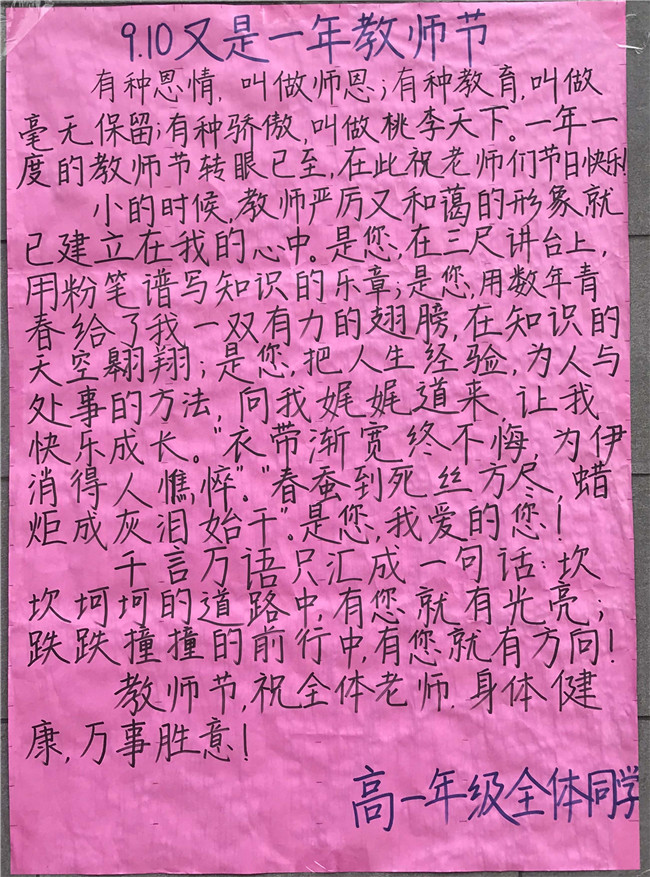 9.10又是一年教师节
有种恩情,叫做师恩;有种教育,叫做
毫无保留;有种骄傲,叫做桃李天下。一年一
度的教师节转眼已至,在此祝老师们节日快乐!
小的时候,教师严厉又和蔼的形象,就
已建立在我的心中。是您,在三尺讲台上,
用粉笔谱写知识的乐章;是您,用数年青
春给了我一双有力的翅膀,在知识的
天空翱翔;是您,把人生经验,为人与
处事的方法,向我娓娓道来,让我
快乐成长。“衣带渐宽终不悔,为伊
消得人憔悴”。“春蚕到死丝方尽,蜡
炬成灰泪始干”。是您,我爱的您!
千言万语只汇成一句话:坎
坎坷坷的道路中,有您就有光亮;
跌跌撞撞的前行中,有您就有方向!
教师节,祝全体老师.身体健
康,万事胜意!
高一年级全体同学